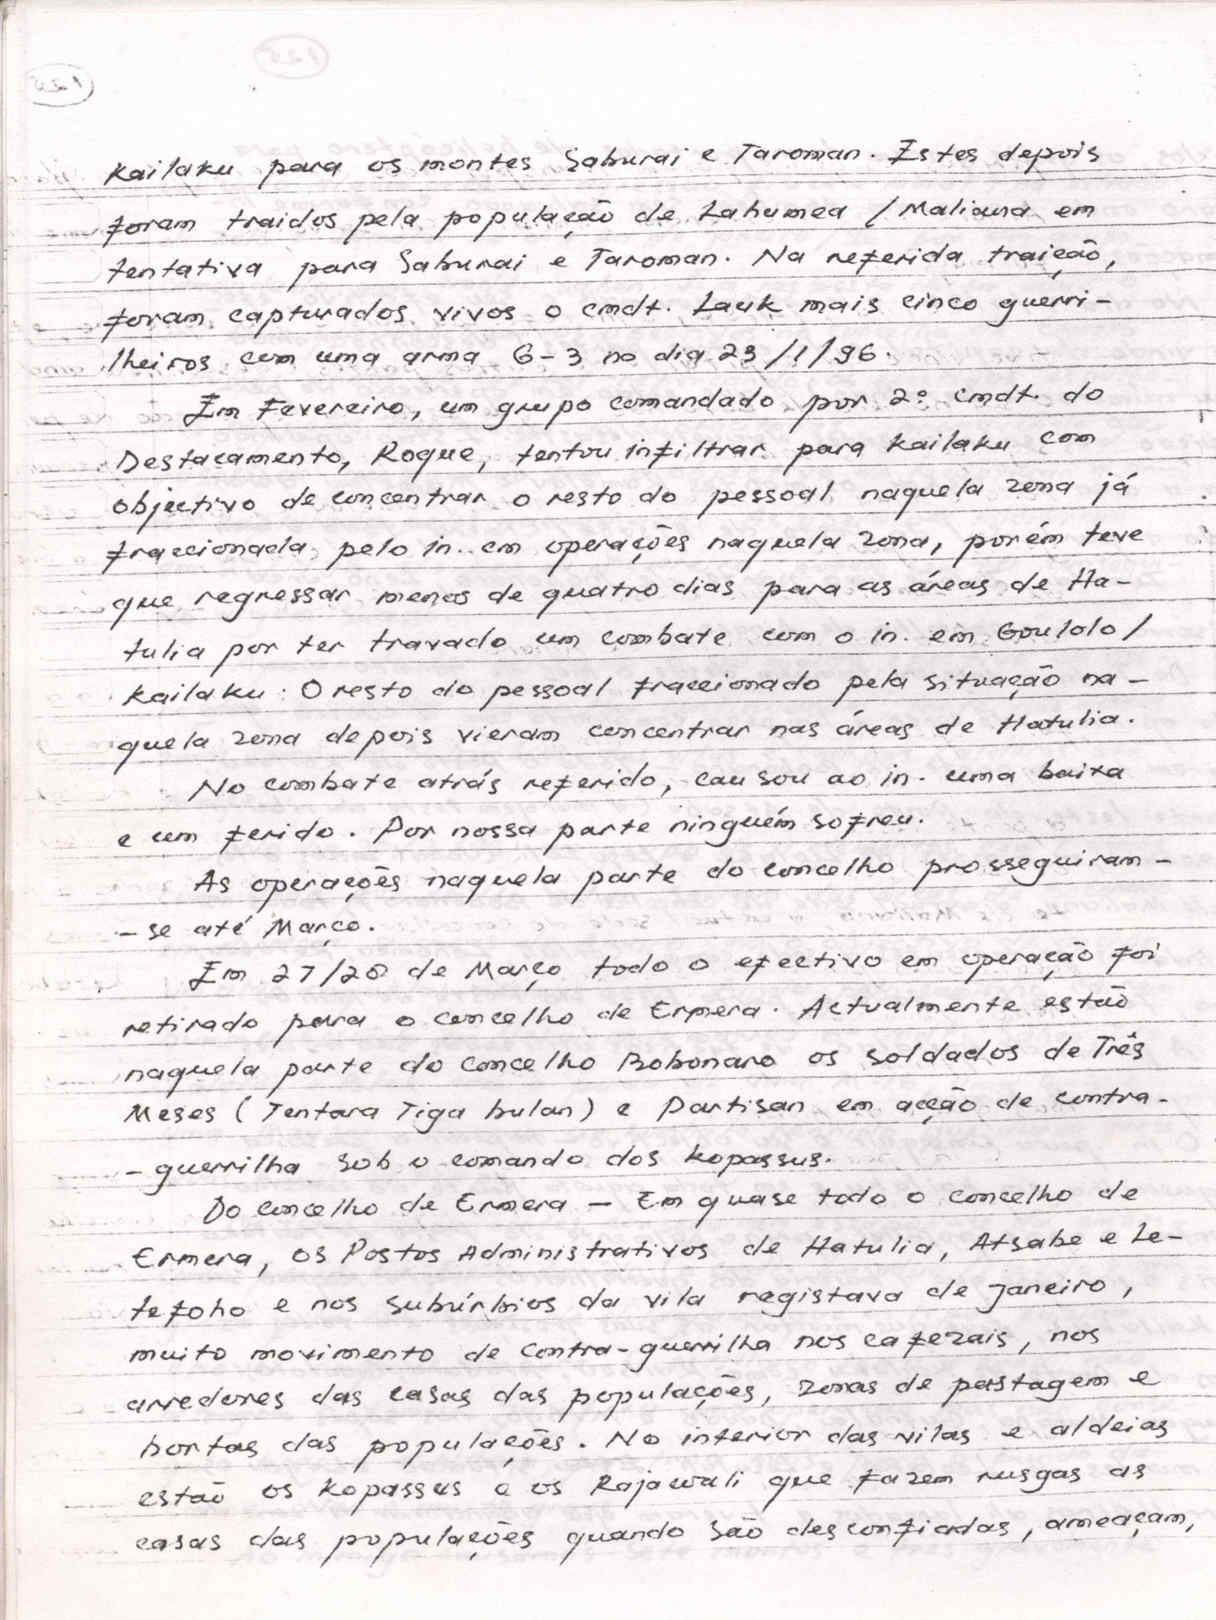 Kailaku para os montes Saburai e Taroman. Estes depois
foram traidos pela população de Lahumea / Maliana em
tentativa para Saburai e Taroman. Na referida traição,
foram capturados vivos o cmdt. Lauk mais cinco guerri-
lheiros com uma arma G-3 no dia 23/1/96.
Em Fevereiro, um grupo comandado por 2º cmdt. do
Destacamento, Roque, tentou infiltrar para Kailaku com
objectivo de concentrar o resto do pessoal naquela zona já
fraccionada pelo in. em operações naquela zona, porém teve
que regressar menos de quatro dias para as áreas de Ha-
tulia por ter travado um combate com o in. em Goulolo/
Kailaku. O resto do pessoal fraccionado pela situação na-
quela zona depois vieram concentrar nas áreas de Hatulia.
No combate atrás referido, causou ao in. uma baixa
e um ferido. Por nossa parte ninguém sofreu.
As operações naquela parte do concelho prosseguiram-
-se até Março.
Em 27/28 de Março todo o efectivo em operação foi
retirado para o concelho de Ermera. Actualmente estão
naquela parte do concelho Bobonaro os soldados de Três
Meses (Tentara Tiga bulan) e Partisan em acção de contra-
-guerrilha sob o comando dos Kopassus.
Do concelho de Ermera — Em quase todo o concelho de
Ermera, os Postos Administrativos de Hatulia, Atsabe e Le-
tefoho e nos subúrbios da vila registava de Janeiro,
muito movimento de contra-guerrilha nos cafezais, nos
arredores das casas das populações, zonas de pastagem e
hortas das populações. No interior das vilas e aldeias
estão os Kopassus e os Rajawali que fazem rusgas as
casas das populações quando são desconfiadas, ameaçam,